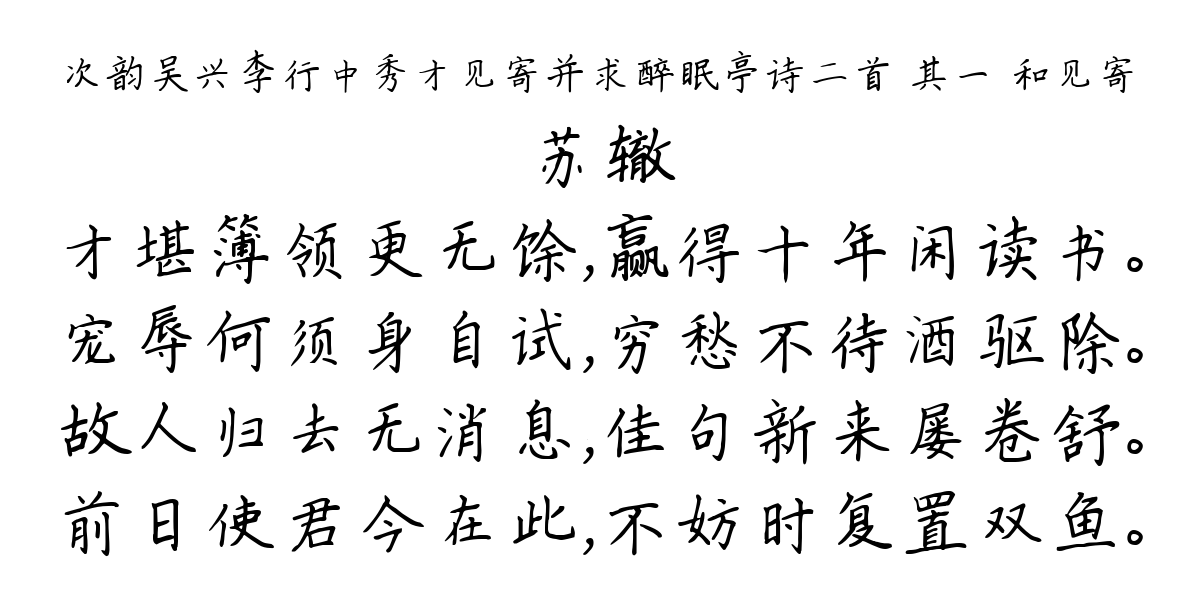 次韵吴兴李行中秀才见寄并求醉眠亭诗二首 其一 和见寄
苏辙
才堪簿领更无馀,赢得十年闲读书。
宠辱何须身自试,穷愁不待酒驱除。
故人归去无消息,佳句新来屡卷舒。
前日使君今在此,不妨时复置双鱼。